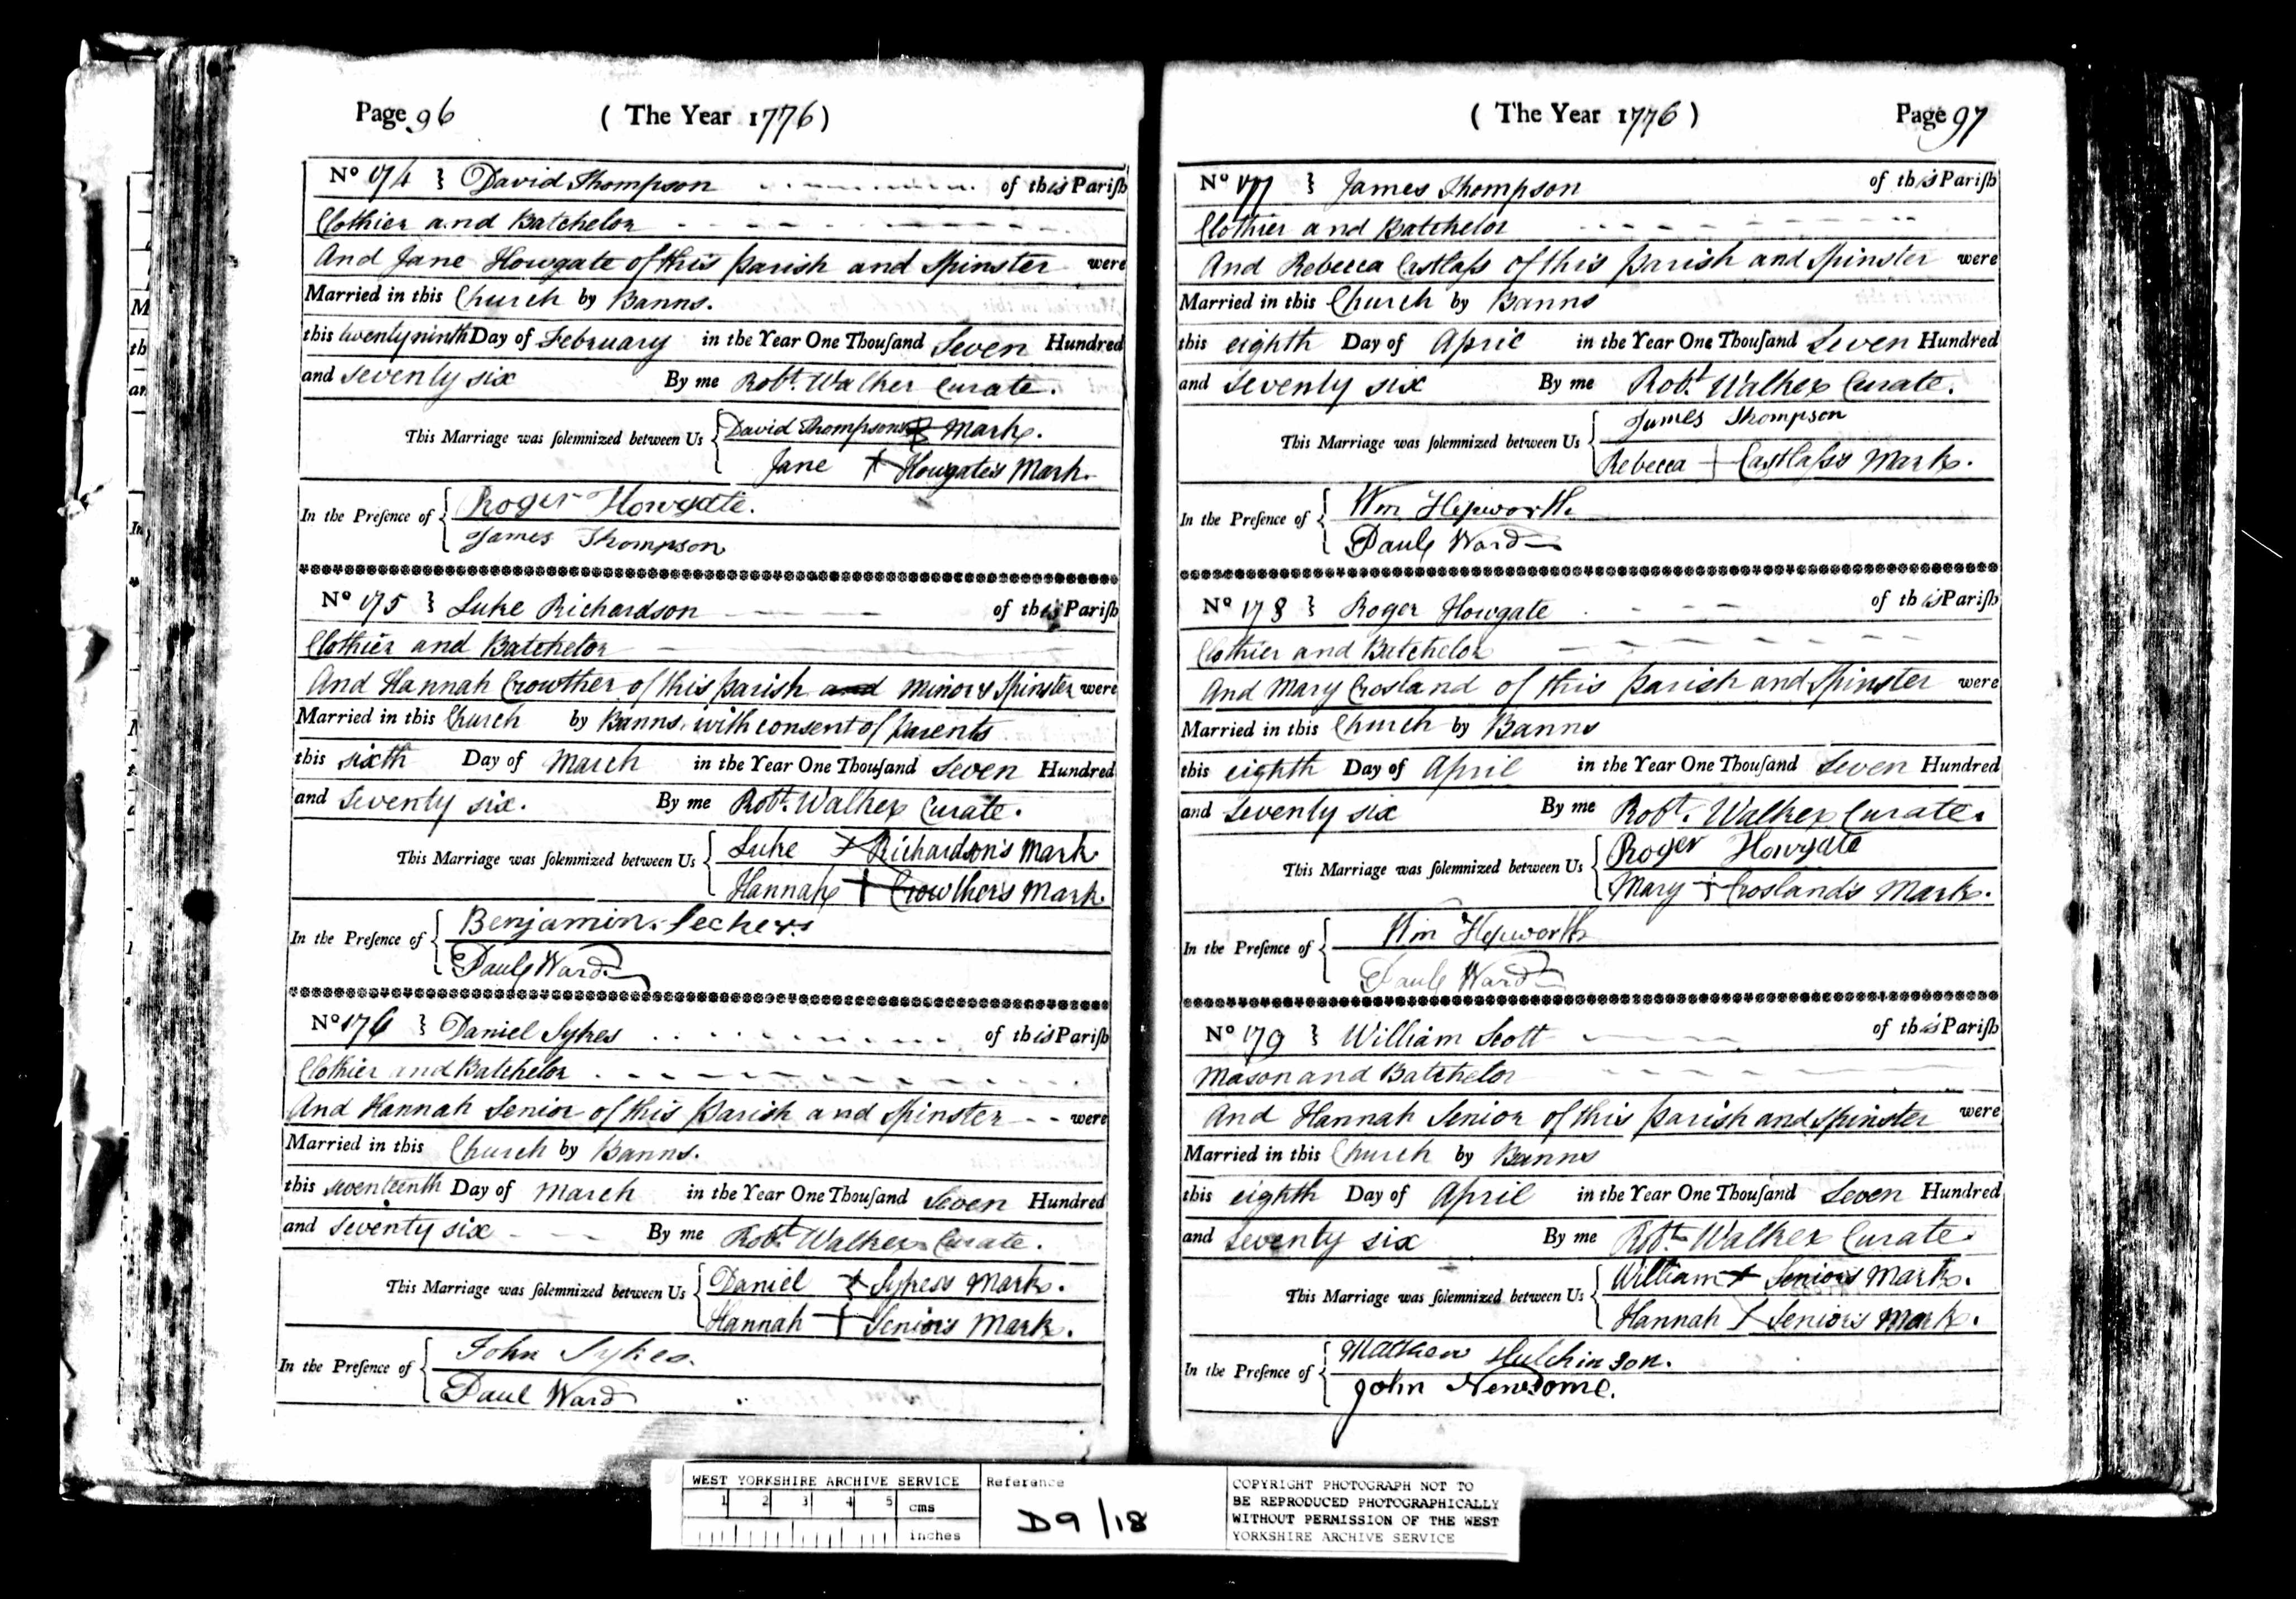 Page 96 ( The Year 1776)
No 174 } David Thompson of this Parish
Clothier and Batchelor
And Jane Howgate of this parish and Spinster were
Married in this Church by Banns.
this twenty ninth Day of February in the Year One Thousand Seven Hundred
and seventy six By me Robt. Walker Curate.
This Marriage was solemnized between Us { David Thompson's Mark.
Jane + Howgate's Mark.
In the Presence of { Roger Howgate.
James Thompson
No 175 } Luke Richardson of this Parish
Clothier and Batchelor
And Hannah Crowther of this parish and minor & Spinster were
Married in this Church by Banns. with consent of parents
this sixth Day of March in the Year One Thousand Seven Hundred
and Seventy six. By me Robt. Walker Curate.
This Marriage was solemnized between Us { Luke + Richardson's Mark
Hannah + Crowther's Mark.
In the Presence of { Benjamin
Paul Ward
No 176 } Daniel Sykes of this Parish
Clothier and Batchelor
And Hannah Senior of this Parish and Spinster were
Married in this Church by Banns.
this seventeenth Day of March in the Year One Thousand Seven Hundred
and Seventy six By me Robt. Walker Curate.
This Marriage was solemnized between Us { Daniel + Sykes's Mark.
Hannah + Senior's Mark.
In the Presence of { John Sykes.
Paul Ward
( The Year 1776) Page 97
No 177 } James Thompson of this Parish
Clothier and Batchelor
And Rebecca Castlass of this parish and Spinster were
Married in this Church by Banns
this eighth Day of April in the Year One Thousand Seven Hundred
and Seventy six By me Robt. Walker Curate.
This Marriage was solemnized between Us { James Thompson
Rebecca + Castlass's Mark.
In the Presence of { Wm Hepworth.
Paul Ward
No 178 } Roger Howgate of this Parish
Clothier and Batchelor
And Mary Crosland of this parish and Spinster were
Married in this Church by Banns
this eighth Day of April in the Year One Thousand Seven Hundred
and Seventy six By me Robt. Walker Curate.
This Marriage was solemnized between Us { Roger Howgate
Mary + Crosland's Mark.
In the Presence of { Wm Hepworth
Paul Ward
No 179 } William Scott of this Parish
Mason and Batchelor
And Hannah Senior of this parish and Spinster were
Married in this Church by Banns
this eighth Day of April in the Year One Thousand Seven Hundred
and Seventy six By me Robt. Walker Curate.
This Marriage was solemnized between Us { William + Senior's Mark.
Hannah + Senior's Mark.
In the Presence of { Mathew Hutchinson.
John Newsome.
WEST YORKSHIRE ARCHIVE SERVICE
1 2 3 4 5 cms
inches
Reference
D9/18
COPYRIGHT PHOTOGRAPH NOT TO
BE REPRODUCED PHOTOGRAPHICALLY
WITHOUT PERMISSION OF THE WEST
YORKSHIRE ARCHIVE SERVICE